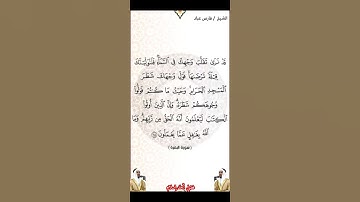 القارئ / فارس عباد
قد نرى تقلب وجهك في السماء فلنولينك
قبلة ترضىها فول وجهك شطر
المسجد الحرام وحيث ما كنتم فولوا
وجوهكم شطره وإن الذين أوتوا
الكتب ليعلمون أنه الحق من ربهم وما
الله بغفل عما يعملون
( سورة البقرة )